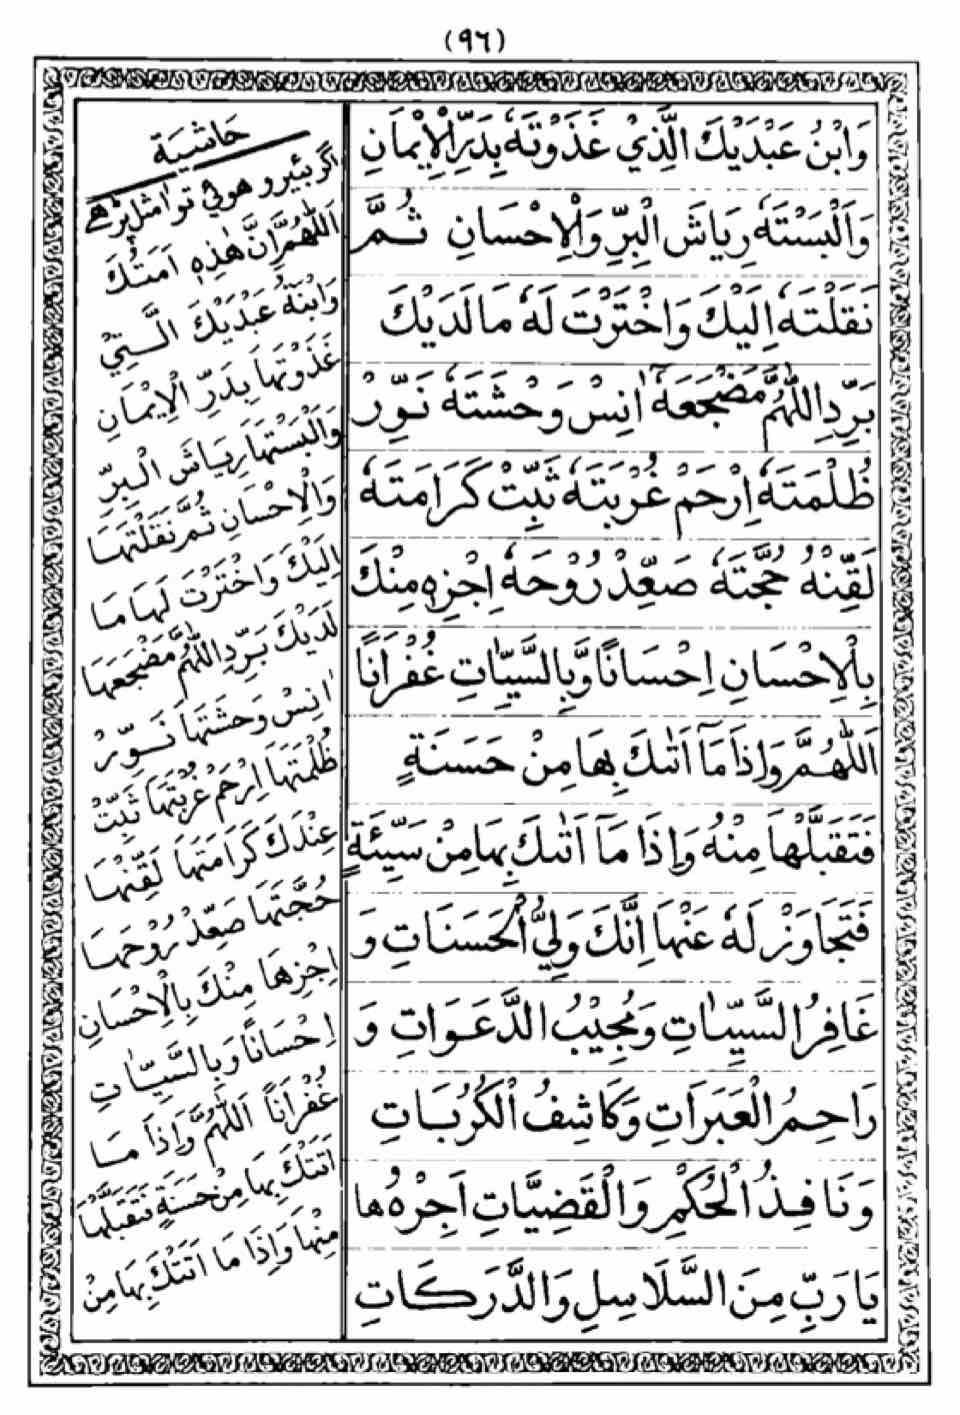 (٩٦)
وَابْنُ عَبْدَيْكَ الَّذِيْ غَذَوْتَهٗ بِدَرِّ الْاِيْمَانِ
وَاَلْبَسْتَهٗ رِيَاشَ الْبِرِّ وَالْاِحْسَانِ ثُمَّ
نَقَلْتَهٗ اِلَيْكَ وَاخْتَرْتَ لَهٗ مَا لَدَيْكَ
بَرِّدِ اللّٰهُمَّ مَضْجَعَهٗ اٰنِسْ وَحْشَتَهٗ نَوِّرْ
ظُلْمَتَهٗ اِرْحَمْ غُرْبَتَهٗ ثَبِّتْ كَرَامَتَهٗ
لَقِّنْهُ حُجَّتَهٗ صَعِّدْ رُوْحَهٗ اِجْزِهٖ مِنْكَ
بِالْاِحْسَانِ اِحْسَانًا وَّبِالسَّيِّاٰتِ غُفْرَانًا
اَللّٰهُمَّ وَاِذَا مَآ اَتٰىكَ بِهَا مِنْ حَسَنَةٍ
فَتَقَبَّلْهَا مِنْهُ وَاِذَا مَآ اَتٰىكَ بِهَا مِنْ سَيِّئَةٍ
فَتَجَاوَزْ لَهٗ عَنْهَا اِنَّكَ وَلِيُّ الْحَسَنَاتِ وَ
غَافِرُ السَّيِّاٰتِ وَمُجِيْبُ الدَّعَوَاتِ وَ
رَاحِمُ الْعَبَرَاتِ وَكَاشِفُ الْكُرُبَاتِ
وَنَافِذُ الْحُكْمِ وَالْقَضِيَّاتِ اَجِرْهُ هَا
يَا رَبِّ مِنَ السَّلَاسِلِ وَالدَّرَكَاتِ
حَاشِيَة
اگر بئيرو هوئي تو امثل پڑهے
اَللّٰهُمَّ اِنَّ هٰذِهٖ اَمَتُكَ
وَابْنَةُ عَبْدَيْكَ الَّتِيْ
غَذَوْتَهَا بِدَرِّ الْاِيْمَانِ
وَاَلْبَسْتَهَا رِيَاشَ الْبِرِّ
وَالْاِحْسَانِ ثُمَّ نَقَلْتَهَا
اِلَيْكَ وَاخْتَرْتَ لَهَا مَا
لَدَيْكَ بَرِّدِ اللّٰهُمَّ مَضْجَعَهَا
اٰنِسْ وَحْشَتَهَا نَوِّرْ
ظُلْمَتَهَا اِرْحَمْ غُرْبَتَهَا ثَبِّتْ
عِنْدَكَ كَرَامَتَهَا لَقِّنْهَا
حُجَّتَهَا صَعِّدْ رُوْحَهَا
اِجْزِهَا مِنْكَ بِالْاِحْسَانِ
اِحْسَانًا وَبِالسَّيِّاٰتِ
غُفْرَانًا اَللّٰهُمَّ وَاِذَا مَا
اَتَتْكَ بِهَا مِنْ حَسَنَةٍ فَتَقَبَّلْهَا
مِنْهَا وَاِذَا مَا اَتَتْكَ بِهَا مِنْ